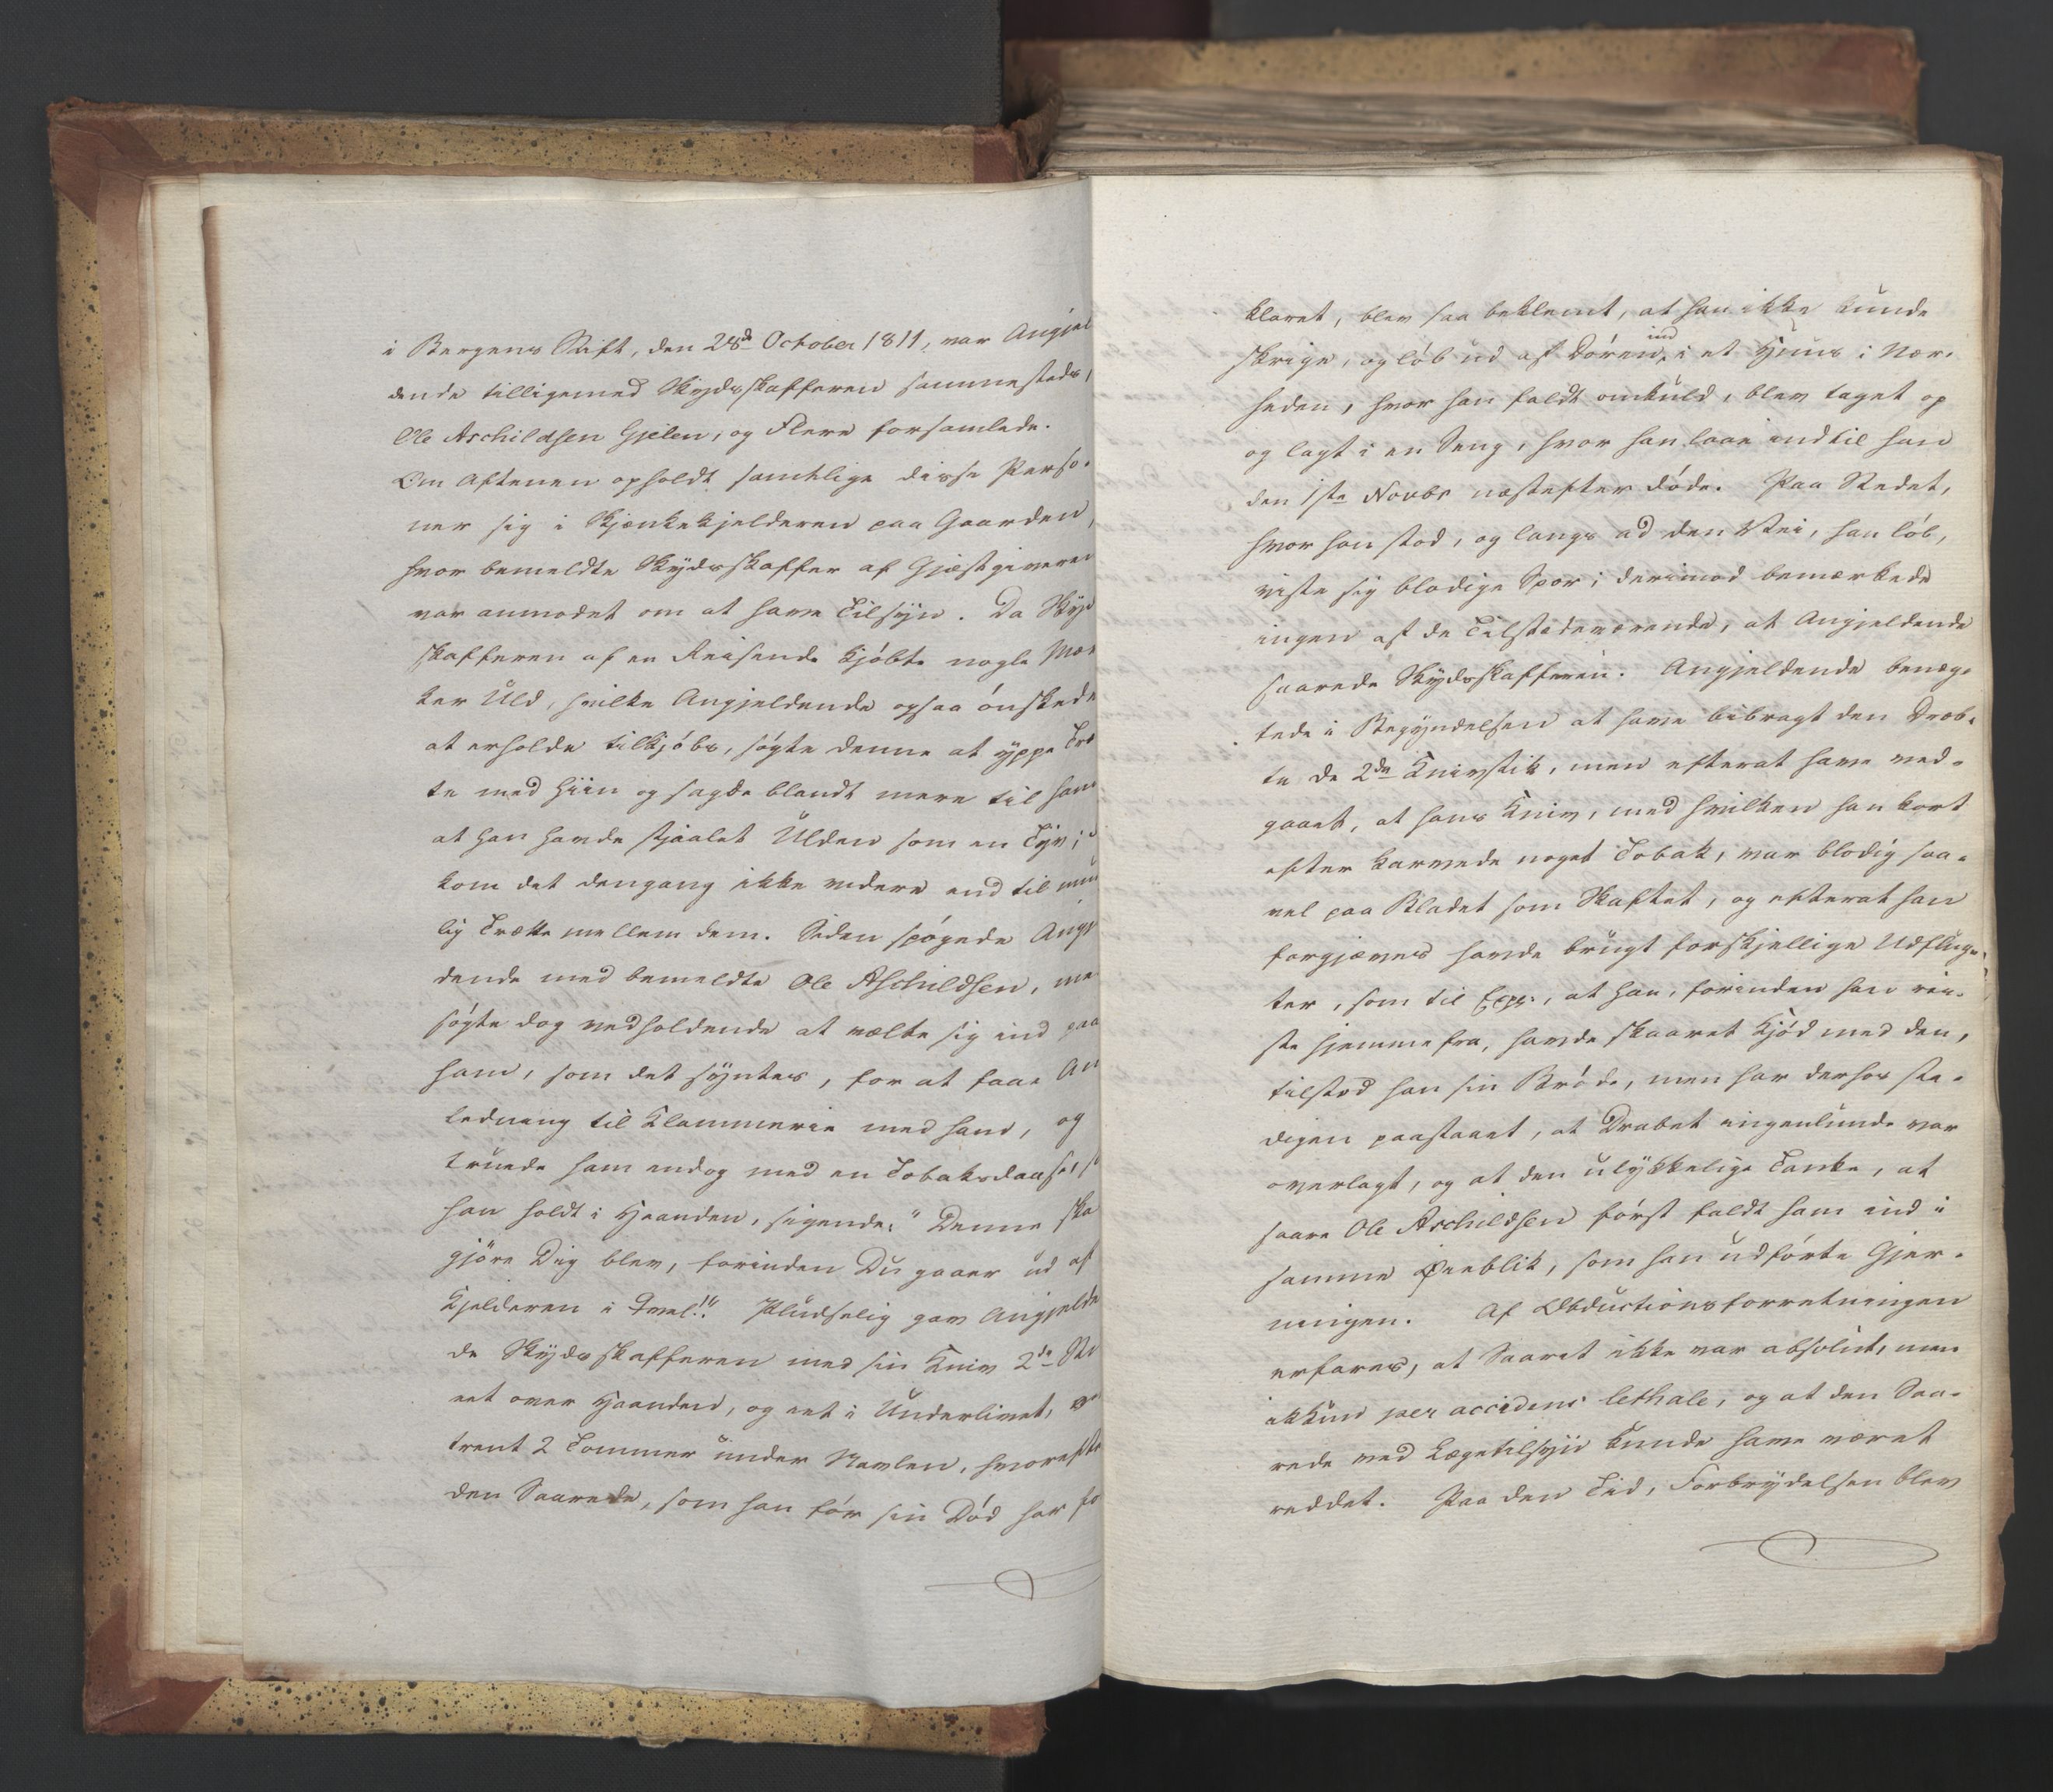 i Bergens Stift, den 28de October 1811, var Angjel
dende tilligemed Skydsskafferen sammesteds,
Ole Aschildsen Gjelen, og Flere forsamlede.
Om Aftenen opholdt samtlige disse Perso-
ner sig i Skjænkekjelderen paa Gaarden,
hvor bemeldte Skydsskaffer af Gjæstgiveren
var anmodet om at have Tilsyn. Da Skyds
skafferen af en Reisende kjøbte nogle Mær
ker Uld, hvilke Angjeldende ogsaa ønskede
at erholde tilkjøbs, søgte denne at yppe Træt
te med Hiin og sagde blandt mere til ham
at han havde stjaalet Ulden som en Tyv;
kom det dengang ikke videre end til mund
lig Trætte mellem dem. Siden spøgede Angjel
dende med bemeldte Ole Aschildsen, men
søgte dog vedholdende at vælte sig ind paa
ham, som det syntes, for at faae An
ledning til Klammerie med ham, og
truede ham endog med en Tobaksdaase, s
han holdt i Haanden, sigende: "Denne skal
gjøre Dig blev, forinden Du gaaer ud af
Kjelderen i Qvel!" Pludselig gav Angjelden
de Skydsskafferen med sin Kniv 2de Sti
eet over Haanden, og eet i Underlivet, om
trent 2 Tommer under Navlen, hvorefter
den Saarede, som han før sin Død har fo
klaret, blev saa beklemt, at han ikke kunde
skrige, og løb ud af Døren, ind i et Huus i Nær-
heden, hvor han faldt omkuld, blev taget op
og lagt i en Seng, hvor han laae indtil han
den 1ste Novbr næstefter døde. Paa Stedet,
hvor han stod, og langs ad den Vei, han løb,
viste sig blodige Spor; derimod bemærkede
ingen af de Tilstedeværende, at Angjeldende
saarede Skydsskafferen. Angjeldende benæg-
tede i Begyndelsen at have bibragt den Dræb-
te de 2de Knivstik, men efterat have ved-
gaaet, at hans Kniv, med hvilken han kort
efter karvede noget Tobak, var blodig saa-
vel paa Bladet som Skaftet, og efterat han
forgjæves havde brugt forskjellige Udflug-
ter, som til Expl., at han, forinden han rei-
ste hjemmefra, havde skaaret Kjød med den,
tilstod han sin Brøde, men har derhos ste-
digen paastaaet, at Drabet ingenlunde var
overlagt, og at den ulykkelige Tanke, at
saare Ole Aschildsen først faldt ham ind i
samme Øieblik, som han udførte Gjer-
ningen. Af Obductionsforretningen
erfares, at Saaret ikke var absolut, men
ikkun per accidens lethale, og at den Saa-
rede ved Lægetilsyn kunde have været
reddet. Paa den Tid, Forbrydelsen blev